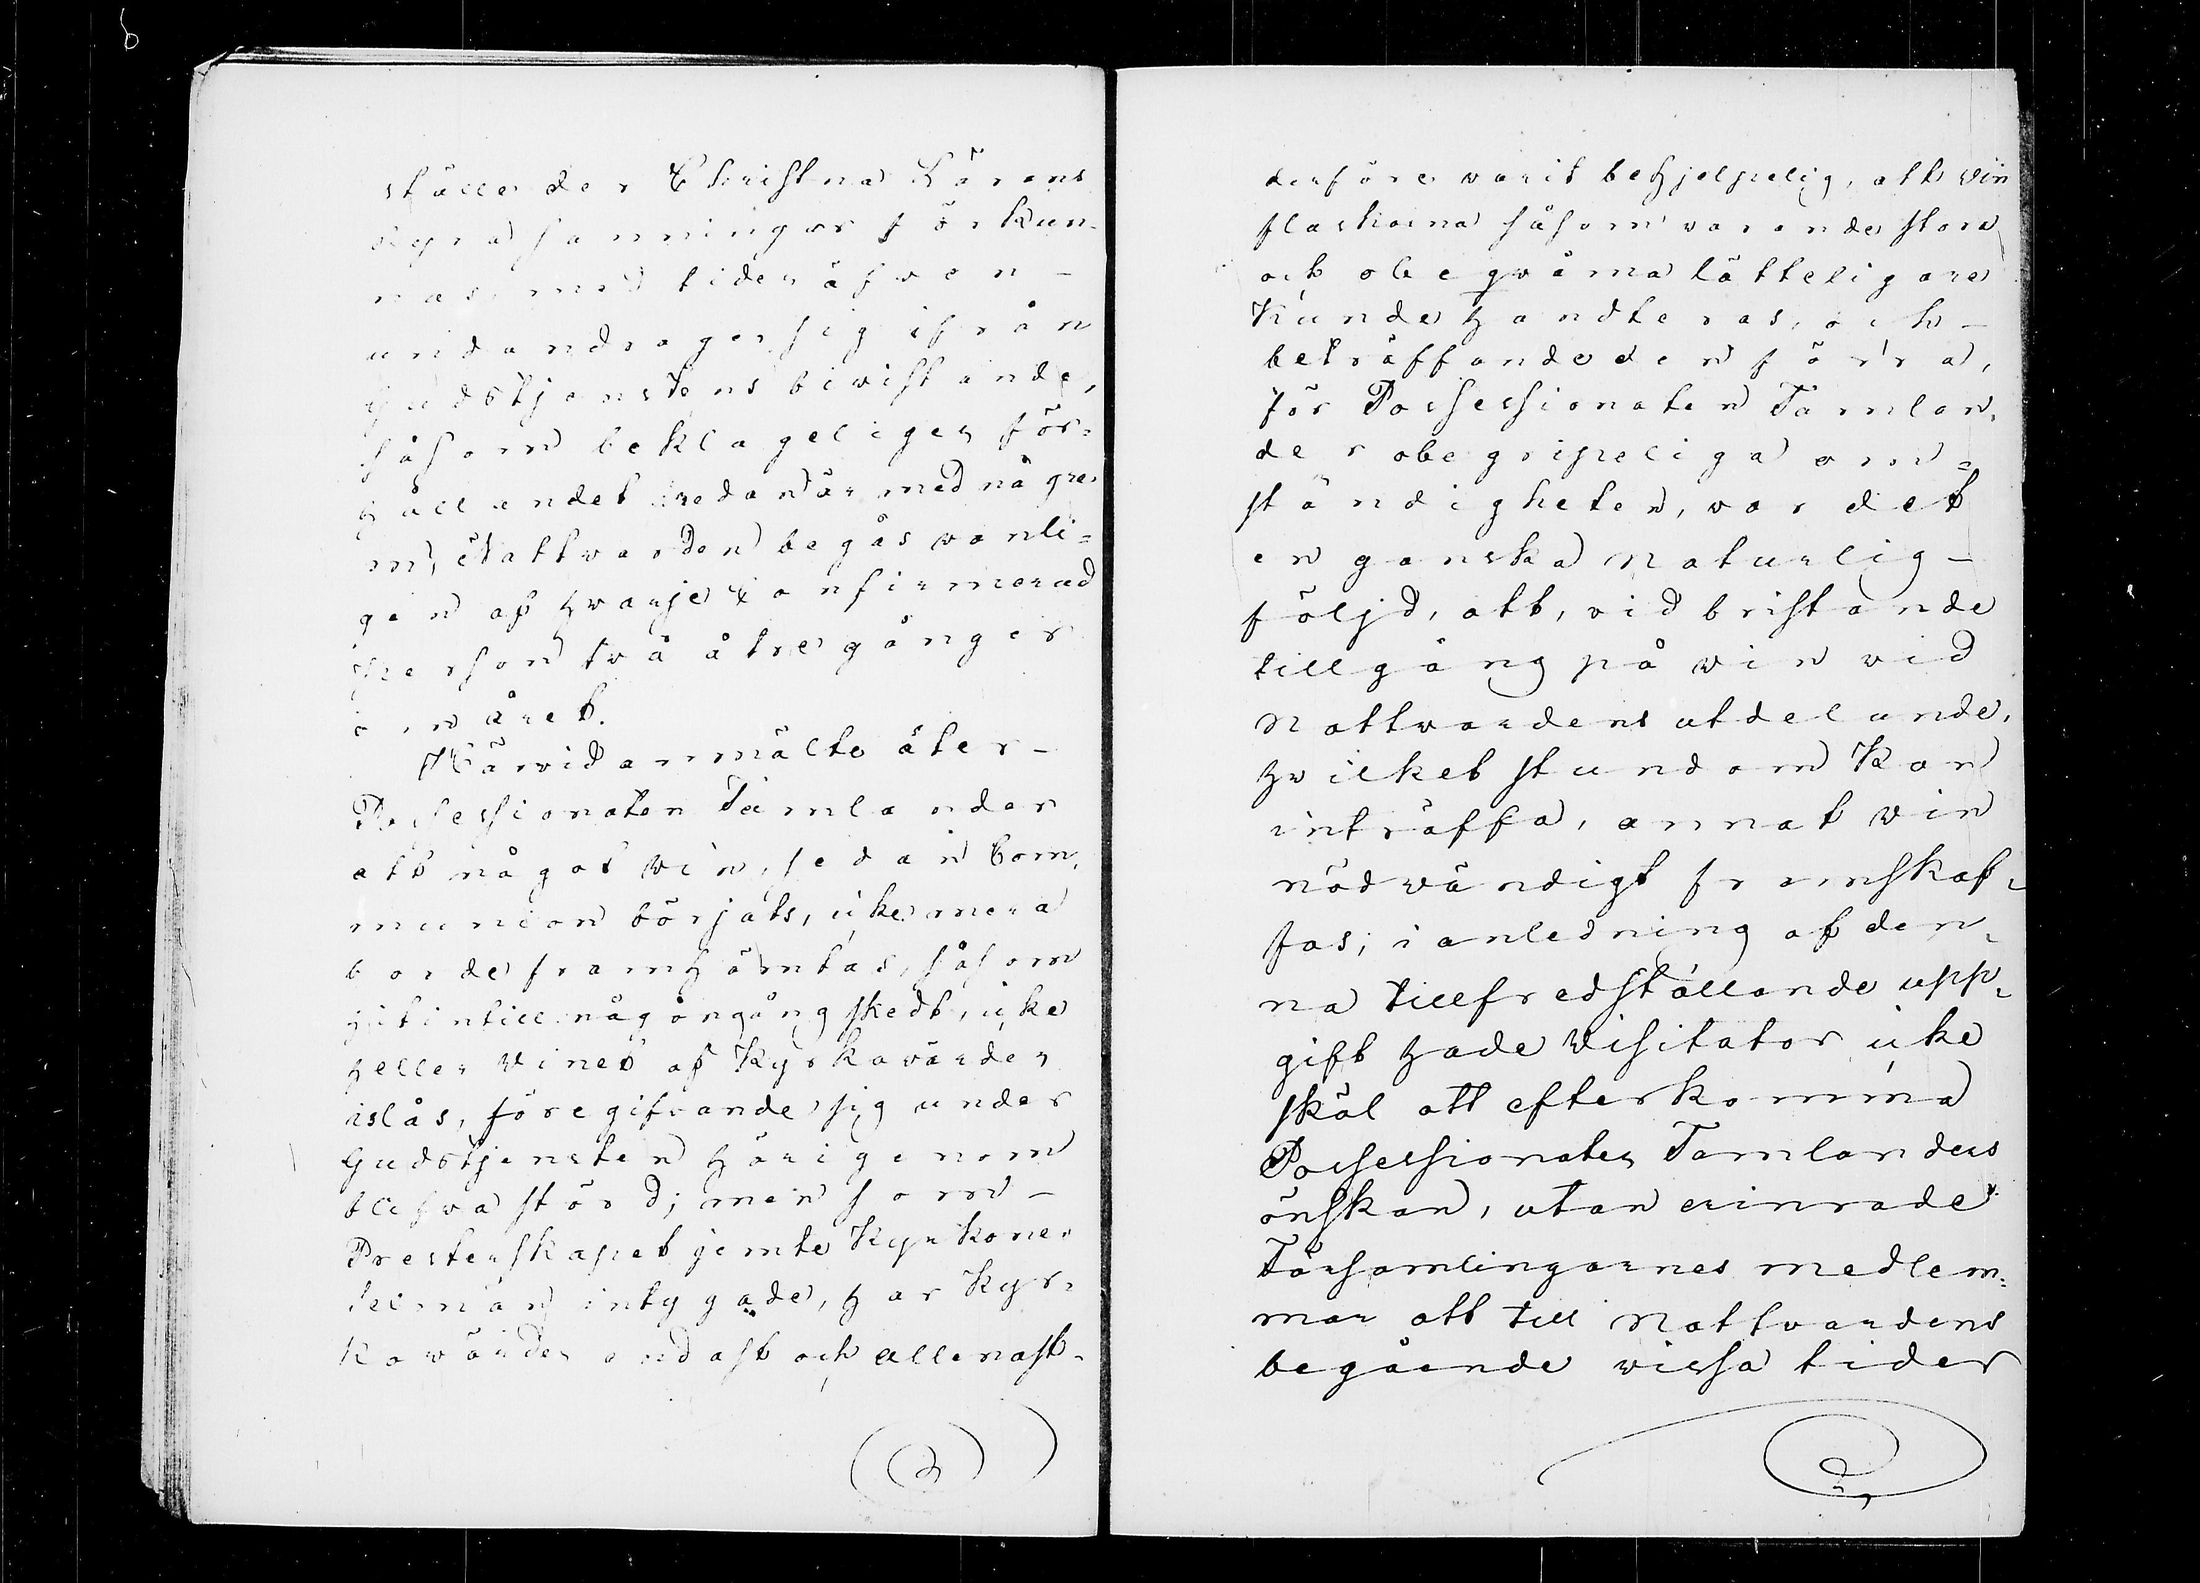 ställe der Christna Lärans
dyra sanningar förkun-
nas, med tiden äfven –
undandrager sig ifrån
Gudstjenstens bivistande,
såsom beklageliger för=
hållandet redan är med någre
m, Nattvarden begås vanli=
gen af hvarje Confirmerad
person två å tre gånger
om året.
Härvid anmälte åter –
Possessionaten Tamlander
att något vin, sedan Com-
munion börjats, icke mera
borde framhämtas, såsom
hitintill någon gång skedt, icke
heller vinet af Kyrkovärden
islås, föregifvande sig under
Gudstjensten härigenom
blifva störd; men som –
Presterskapet jemte Kyrkone-
intygade, har Kyr-
kovärden endast och allenast
derföre varit behjelpelig, att vin
flaskorna såsom varande stora
och obeqväma lätteligare
Kunde handteras, och –
beträffande den förra,
för Possessionaten Tamlan-
der obegripeliga om=
ständigheten, var det
en ganska naturlig –
följd, att, vid bristande
tillgång på vin vid
Nattvardens utdelande,
hvilket stundom Kan
inträffa, annat vin
nödvändigt framskaf-
fas; i anledning af den-
na tillfredställande upp-
gift hade Visitator icke
skäl att efterkomma
Possessionaten Tamlanders
önskan, utan erinrade
Församlingarnes medlem=
mar att till Nattvardens
begående vissa tider